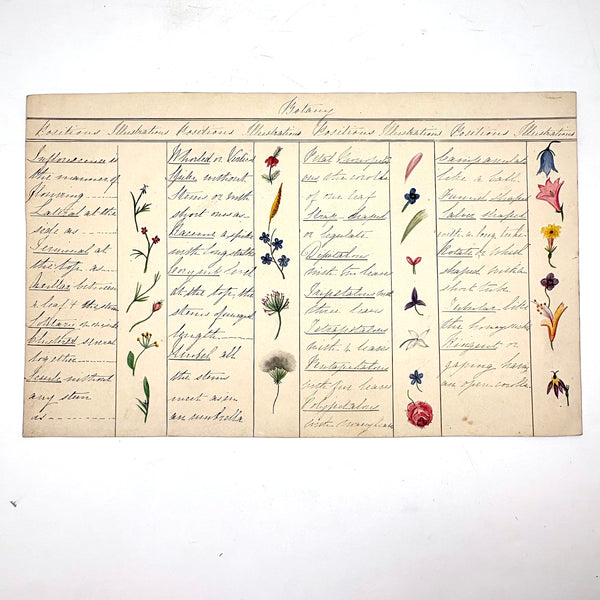 Botany
Positions Illustrations Positions Illustrations Positions Illustrations Positions Illustrations
Inflorescence is
the manner of
flowering
Lateral at the
side as
Terminal at
the top as
Axillar between
a leaf & the stem
Solitary or single
Clustered several
together
Sessile without
any stem
as
Whorled or
Spike without
Stems or with
short ones as
Raceme a spike
with long stalks
Corymb level
at the top, the
stems of unequal
length
Umbel all
the stems
meet as in
an umbrella
Petal
the corolla
of one leaf
or legulate
Dipetalous
with two leaves
Tripetalous with
three leaves
Tetrapetalous
with 4 leaves
Pentapetalous
with five leaves
Polypetalous
with many leaves
Campanulate
like a bell
Funnel shaped
Salver shaped
with a long tube
Rotate or Wheel
shaped with a
short tube
Tubular like
the honeysuckle
Ringent or
gaping having
an open corolla